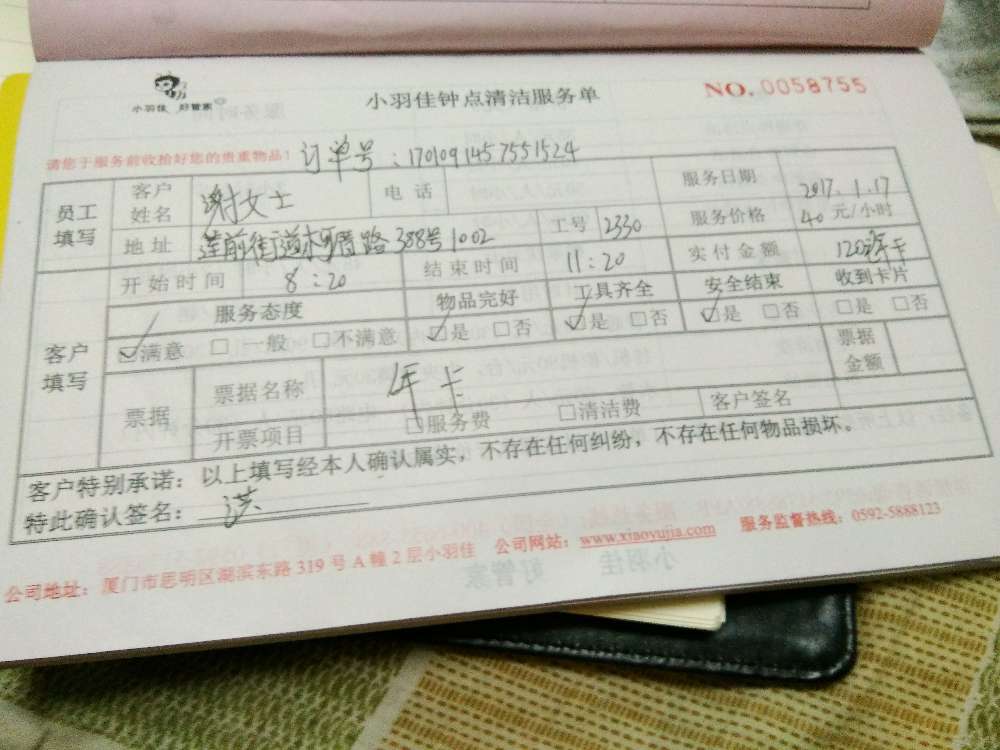 小羽佳 好管家
小羽佳钟点清洁服务单
NO. 0058755
请您于服务前收拾好您的贵重物品!
订单号:1701091457551524
员工填写 客户姓名 谢女士 电话 服务日期 2017.1.17
地址 莲前街道 路388号1002 工号 2330 服务价格 40 元/小时
开始时间 8:20 结束时间 11:20 实付金额 120 年卡
客户填写 服务态度 物品完好 工具齐全 安全结束 收到卡片
满意 一般 不满意 是 否 是 否 是 否 是 否
票据 票据名称 年卡 票据金额
开票项目 服务费 清洁费 客户签名
客户特别承诺:以上填写经本人确认属实,不存在任何纠纷,不存在任何物品损坏。
特此确认签名:洪
公司地址:厦门市思明区湖滨东路 319 号 A 幢 2 层小羽佳 公司网站:www.xiaoyujia.com 服务监督热线:0592-5888123